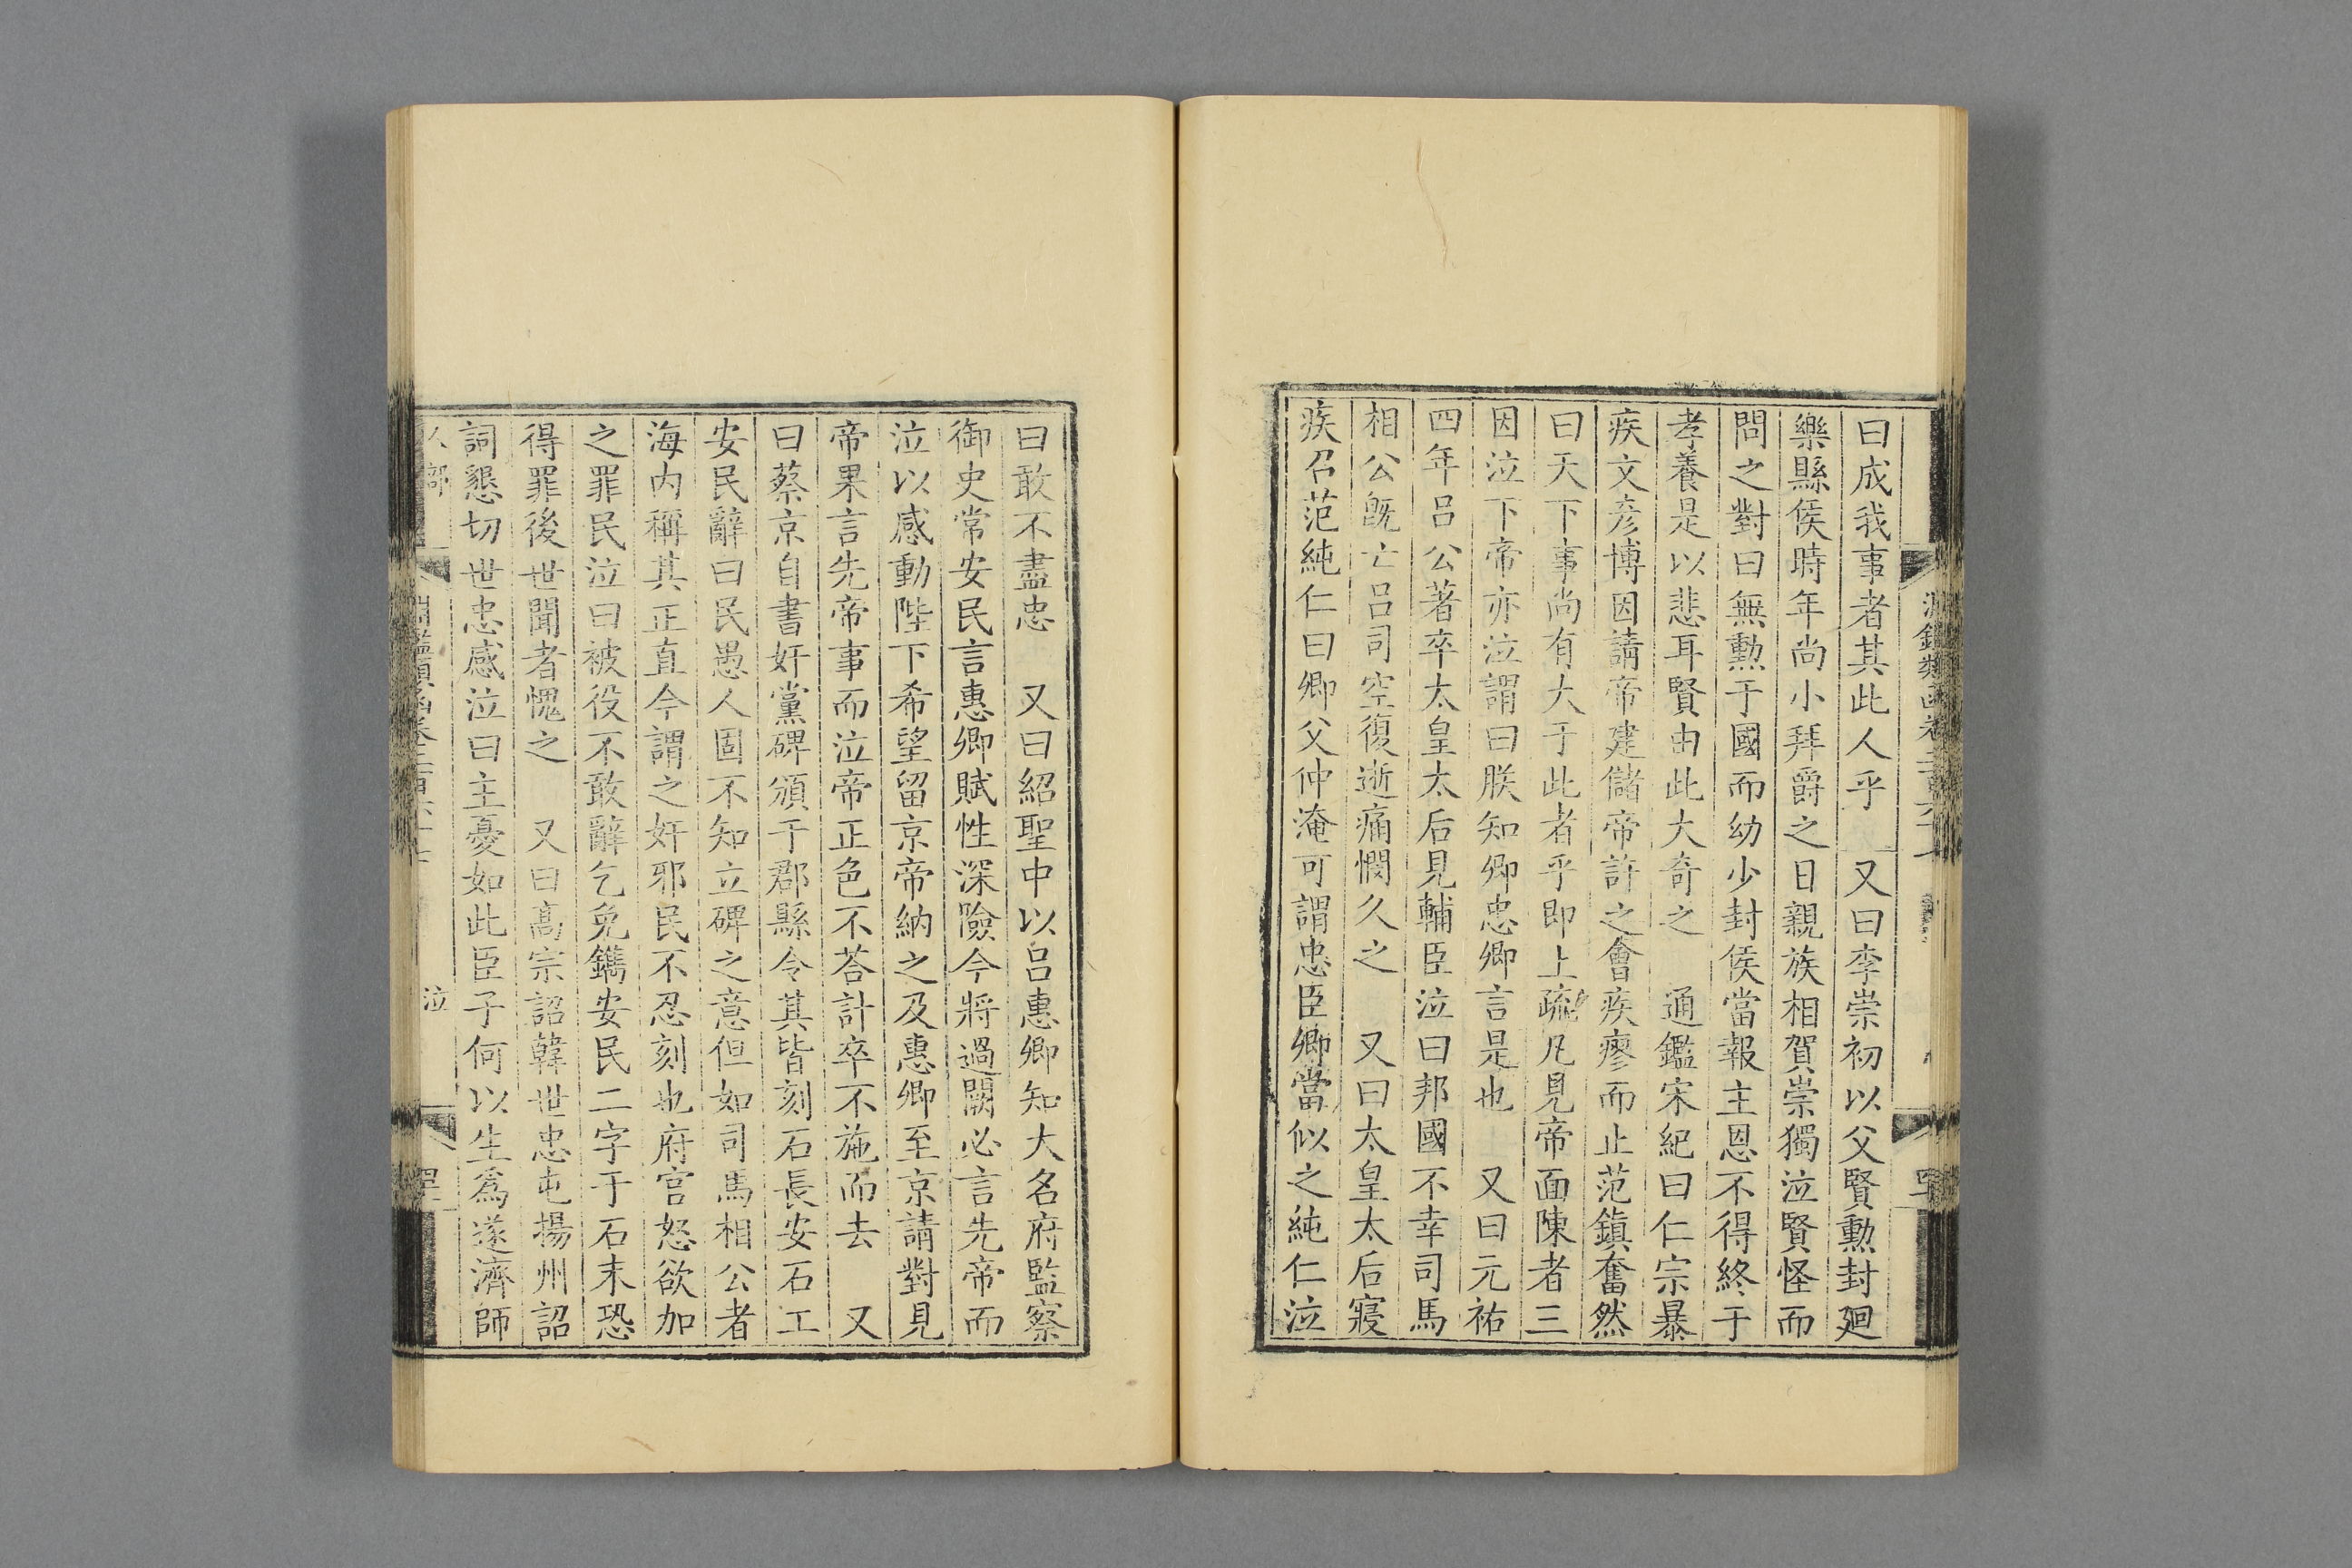 曰成我事者其此人乎　又曰李崇初以父賢勳封廻
樂縣侯時年尚小拜爵之日親族相賀崇獨泣賢怪而
問之對曰無勳于國而幼少封侯當報主恩不得終于
孝養是以悲耳賢由此大奇之　通鑑宋紀曰仁宗暴
疾文彥博因請帝建儲帝許之會疾瘳而止范鎮奮然
曰天下事尚有大于此者乎即上疏凡見帝面陳者三
因泣下帝亦泣謂曰朕知卿忠卿言是也　又曰元祐
四年呂公著卒太皇太后見輔臣泣曰邦國不幸司馬
相公既亡呂司空復逝痛憫久之　又曰太皇太后寢
疾召范純仁曰卿父仲淹可謂忠臣卿當似之純仁泣
曰敢不盡忠　又曰紹聖中以呂惠卿知大名府監察
御史常安民言惠卿賦性深險今將過闕必言先帝而
泣以感動陛下希望留京帝納之及惠卿至京請對見
帝果言先帝事而泣帝正色不荅計卒不施而去　又
曰蔡京自書奸黨碑頒于郡縣令其皆刻石長安石工
安民辭曰民愚人固不知立碑之意但如司馬相公者
海內稱其正直今謂之奸邪民不忍刻也府官怒欲加
之罪民泣曰被役不敢辭乞免鐫安民二字于石末恐
得罪後世聞者愧之　又曰高宗詔韓世忠屯揚州詔
詞懇切世忠感泣曰主憂如此臣子何以生爲遂濟師
人部
泣